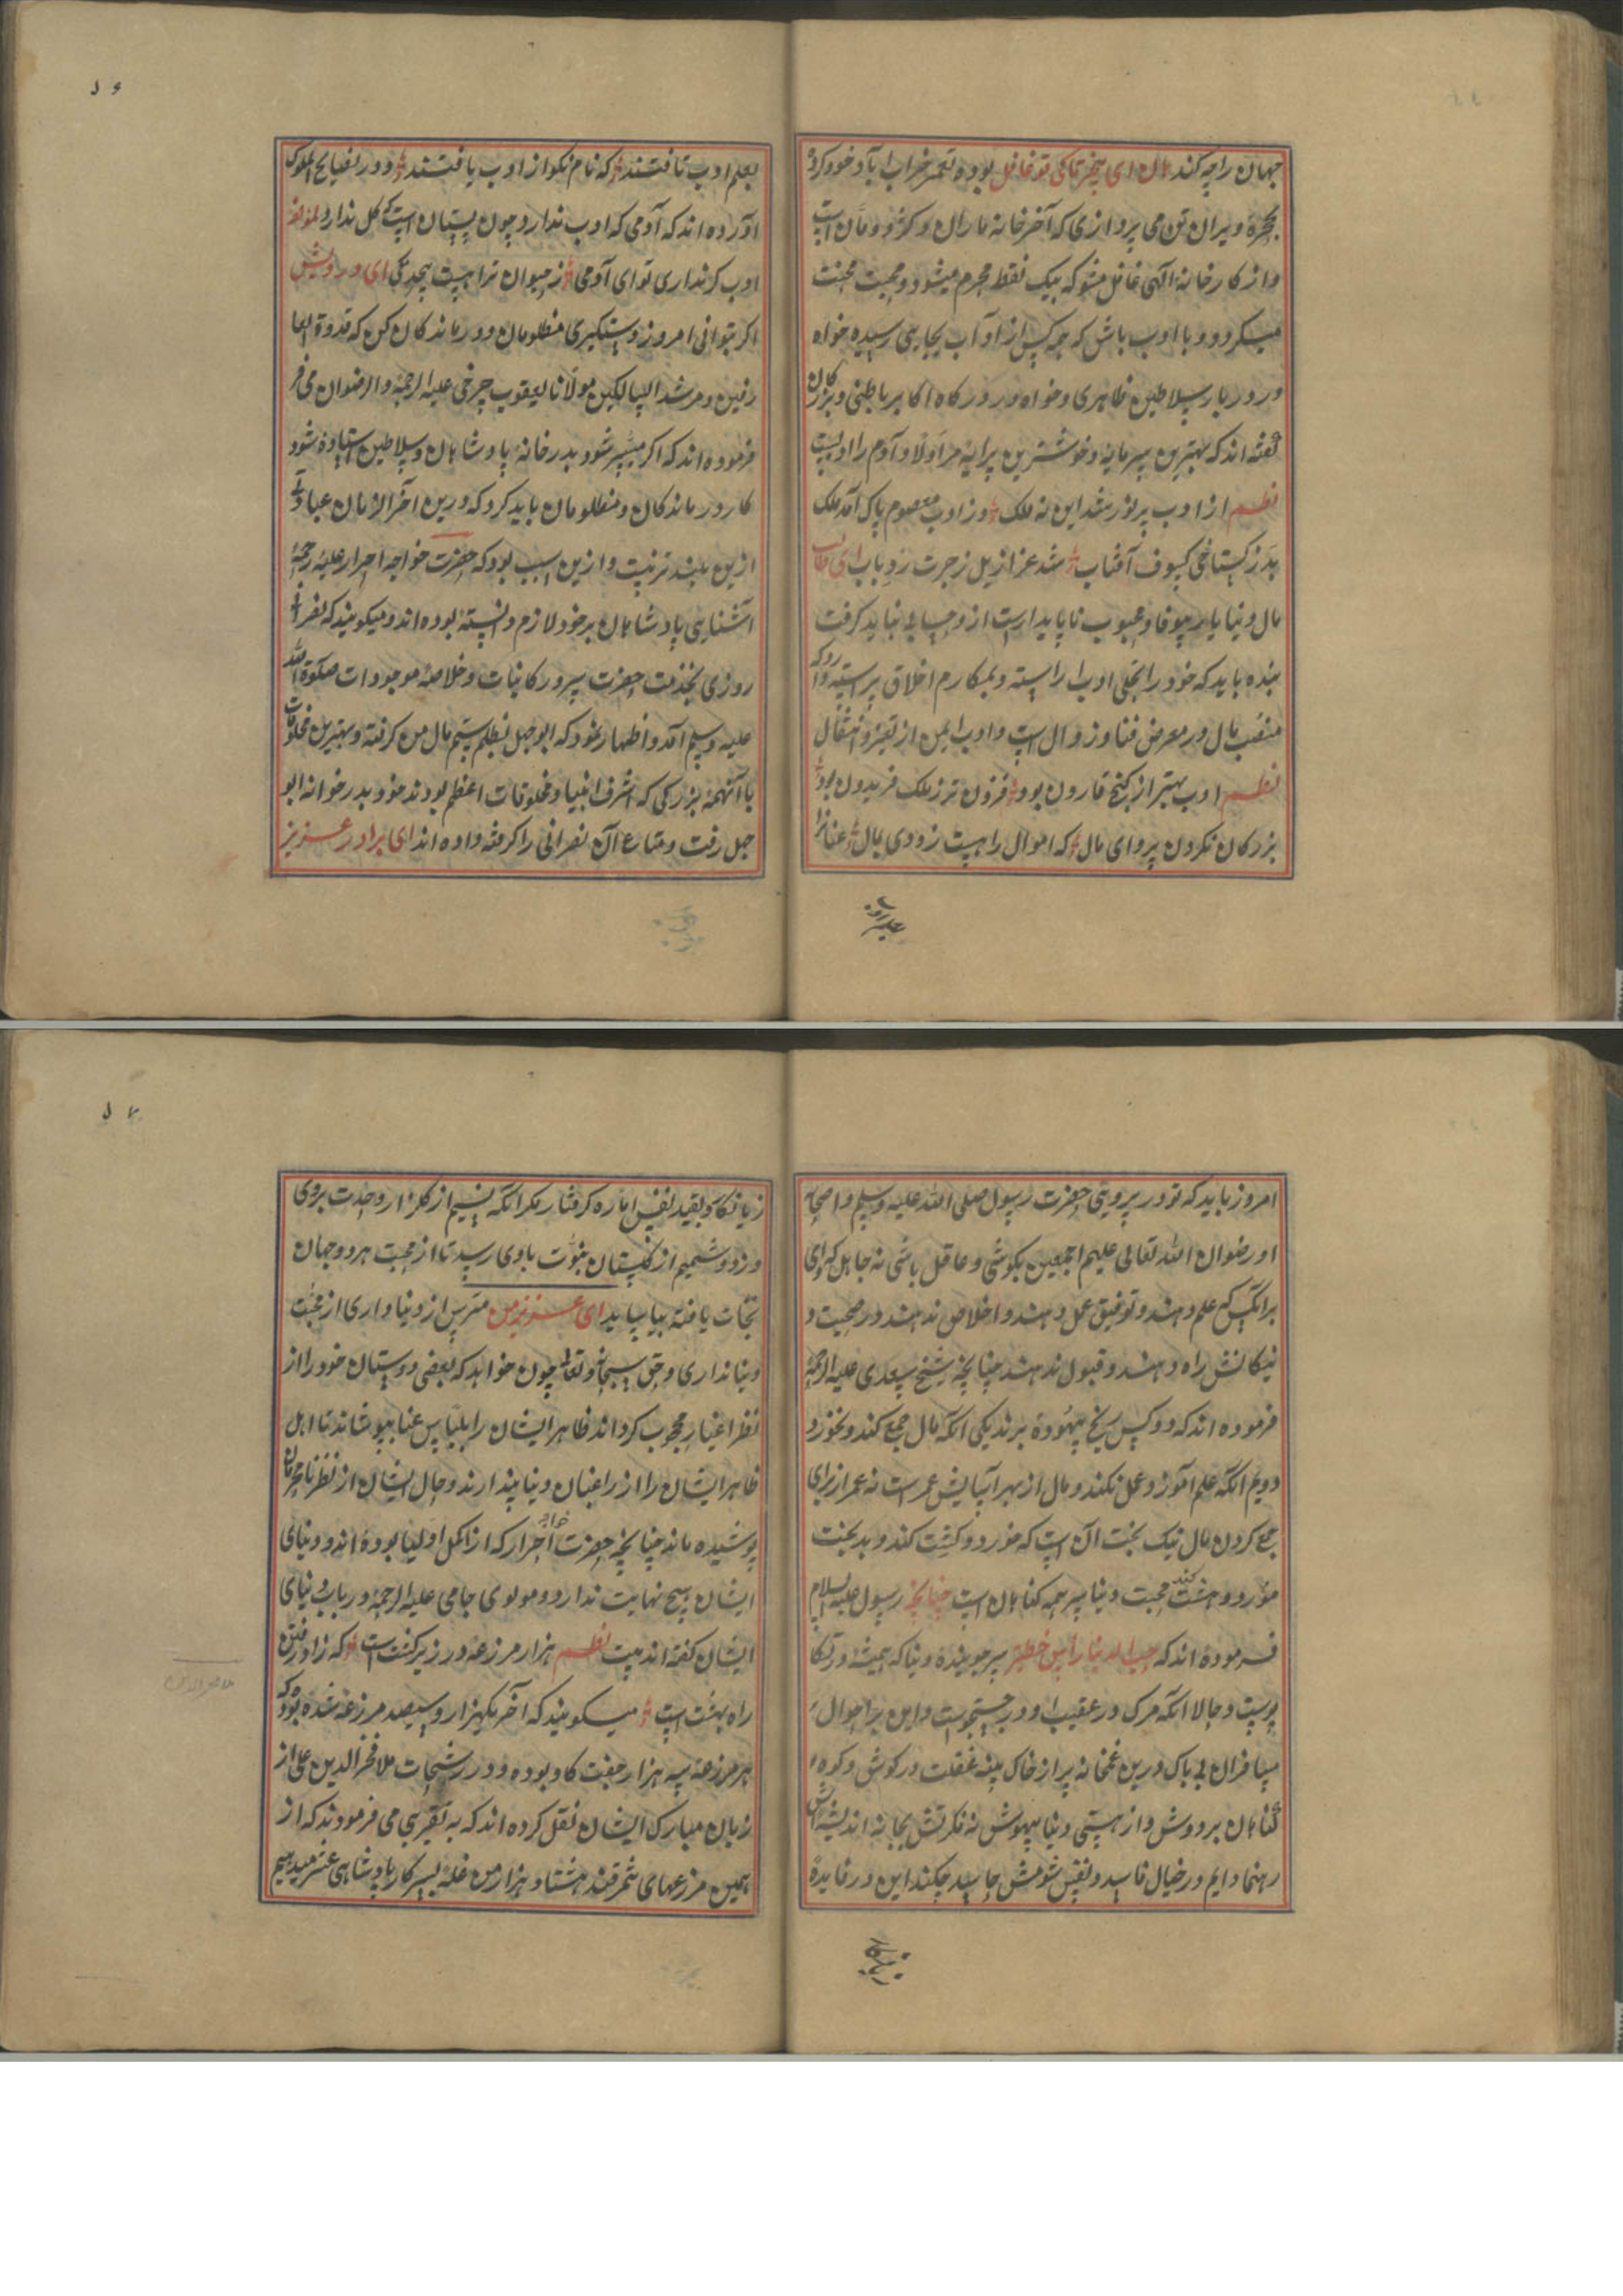 جهان را چه کند هان ای بیخبر تا کی تو غافل بوده تعمیر خراب آباد خود کرده
بحجرۀ ویران تن می پردازی که آخر خانه ماران و کژدمان است
و از کارخانه الهی غافل مشو که بیک نقطه محرم مجرم میشود و محبت محنت
میگردد و با ادب باش که همه کس از آداب بجایی رسیده خواه
در دربار سلاطین ظاهری و خواه در درگاه اکابر باطنی و بزرگان
گفته اند که بهترین سرمایه و خوشترین پرایه مر اولاد آدم را ادبست
نظم از ادب پر نور شد این نه فلک و ز ادب معصوم پاک آمد ملک
بد ز گستاخی کسوف آفتاب شد عزازیل ز جرت رد باب ای طالب
مال دنیا یار بیوفا و محبوب ناپایدار است از و حسابی نباید گرفت
بنده باید که خود را بحلی ادب اراسته و بمکارم اخلاق پیراسته دارد که
منصب مال در معرض فنا و زوال است و ادب ایمن از تغیر و انتقال
نظم ادب بهتر از گنج قارون بود فزون تر ز ملک فریدون بود
بزرگان نکردن پروای مال که اموال را هست زودی زوال عنانرا
بعلم ادب تافتند که نام نکو از ادب یافتند و در نصایح الملوک
آورده اند که آدمی که ادب ندارد چون بستان است که گل ندارد لمؤلفه
ادب گر نداری تو ای آدمی ز حیوان ترا هست بیحد کمی ای درویش
اگر بتوانی امروز دستگیری مظلومان و درماندگان کن که قدوة العا
رفین و مرشد السالکین مولانا یعقوب چرخی علیه الرحمة والرضوان می فر
فرموده اند که اگر میسر شود بدر خانه پادشاهان و سلاطین استاده شود
کار درماندگان و مظلومان باید کرد که درین آخر الزمان عبادتی
ازین بلند تر نیست و ازین سبب بود که حضرت خواجه احرار علیه رحمة
آشنایی پادشاهان بر خود لازم دانسته بوده اند و میگویند که نصرانی
روزی بخدمت حضرت سرور کاینات و خلاصه موجودات صلوة الله
علیه وسلم آمد و اظهار نمود که ابوجهل بظلم ستم مال من گرفته و بهترین مخلوقات
با آنهمه بزرگی که اشرف انبیا و مخلوقات اعظم بودند خود بدر خوانه ابو
جهل رفت و متاع آن نصرانی را گرفته داده اند ای برادر عزیز
امروز باید که تو در پیرویتی حضرت رسول صلی الله علیه وسلم و اصحاب
او رضوان الله تعالی علیهم اجمعین بکوشی و عاقل باشی نه جاهل که وای
بر آنکس که علم دهند و توفیق عمل دهند و اخلاص ندهند و در صحبت
نیکانش راه دهند و قبول ندهند چنانچه شیخ سعدی علیه الرحمه
فرموده اند که دو کس رنج بیهوده برند یکی آنکه مال جمع کند و نخورد
دویم آنکه علم آموزد و عمل نکند و مال از بهر آسایش عمر است نه عمر از برای
جمع کردن مال نیک بخت آن است که خورد و کشت کند و بدبخت
مرد و هشت کند محبت دنیا سر همه گناهان است چنانچه رسول علیه السلام
فرموده اند که حب الدنیا رأس خطیئة
پوست و حالا آنکه مرگ در عقیب او در جستجوست و این بر احوال
مسافران بی باک درین غمخانه پر از خاک پنبه غفلت در گوش و کوه
گناهان بر دوش و از هستی دنیا بیهوش نه فکرتش بجا نه اندیشه اش
رهنما دایم در خیال فاسد و نفس شومش حاسد چکند این در فایده
زیانکار بقید نفس اماره گرفتار مگر آنکه نسیم از گلزار وحدت بروی
وزد و شمیم از گلستان نبوت باوی رسید تا از محبت هر دو جهان
نجات یافته بیاساید ای عزیز من مترس از دنیا داری از محبت
دنیا نداری و حق سبحانه و تعالی چون خواهد که بعضی دوستان خود را از
نظر اغیار محجوب گرداند ظاهر ایشان را بلباس غنا بپوشاند تا اهل
ظاهر ایشان را از راغبان دنیا پندارند و حال ایشان از نظر نامحرمان
پوشیده ماند چنانچه حضرت خواجه احرار که از اکمل اولیا بوده اند و دنیای
ایشان هیچ نهایت ندارد و مولوی جامی علیه الرحمه در باب دنیای
ایشان گفته اند بیت نظم هزار مزرعه در زیر کشت است که زاد رفتن
راه بهشت است میگویند که آخر یکهزار و سیصد مزرعه شده بود که
هر مزرعه سه هزار جفت گاو بوده و در رشحات ملا فخر الدین علی از
زبان مبارک ایشان نقل کرده اند که به تقریبی می فرمودند که از
همین مزرعهای سمرقند هشتاد هزار من غله بسرکار پادشاهی عشر میدهیم